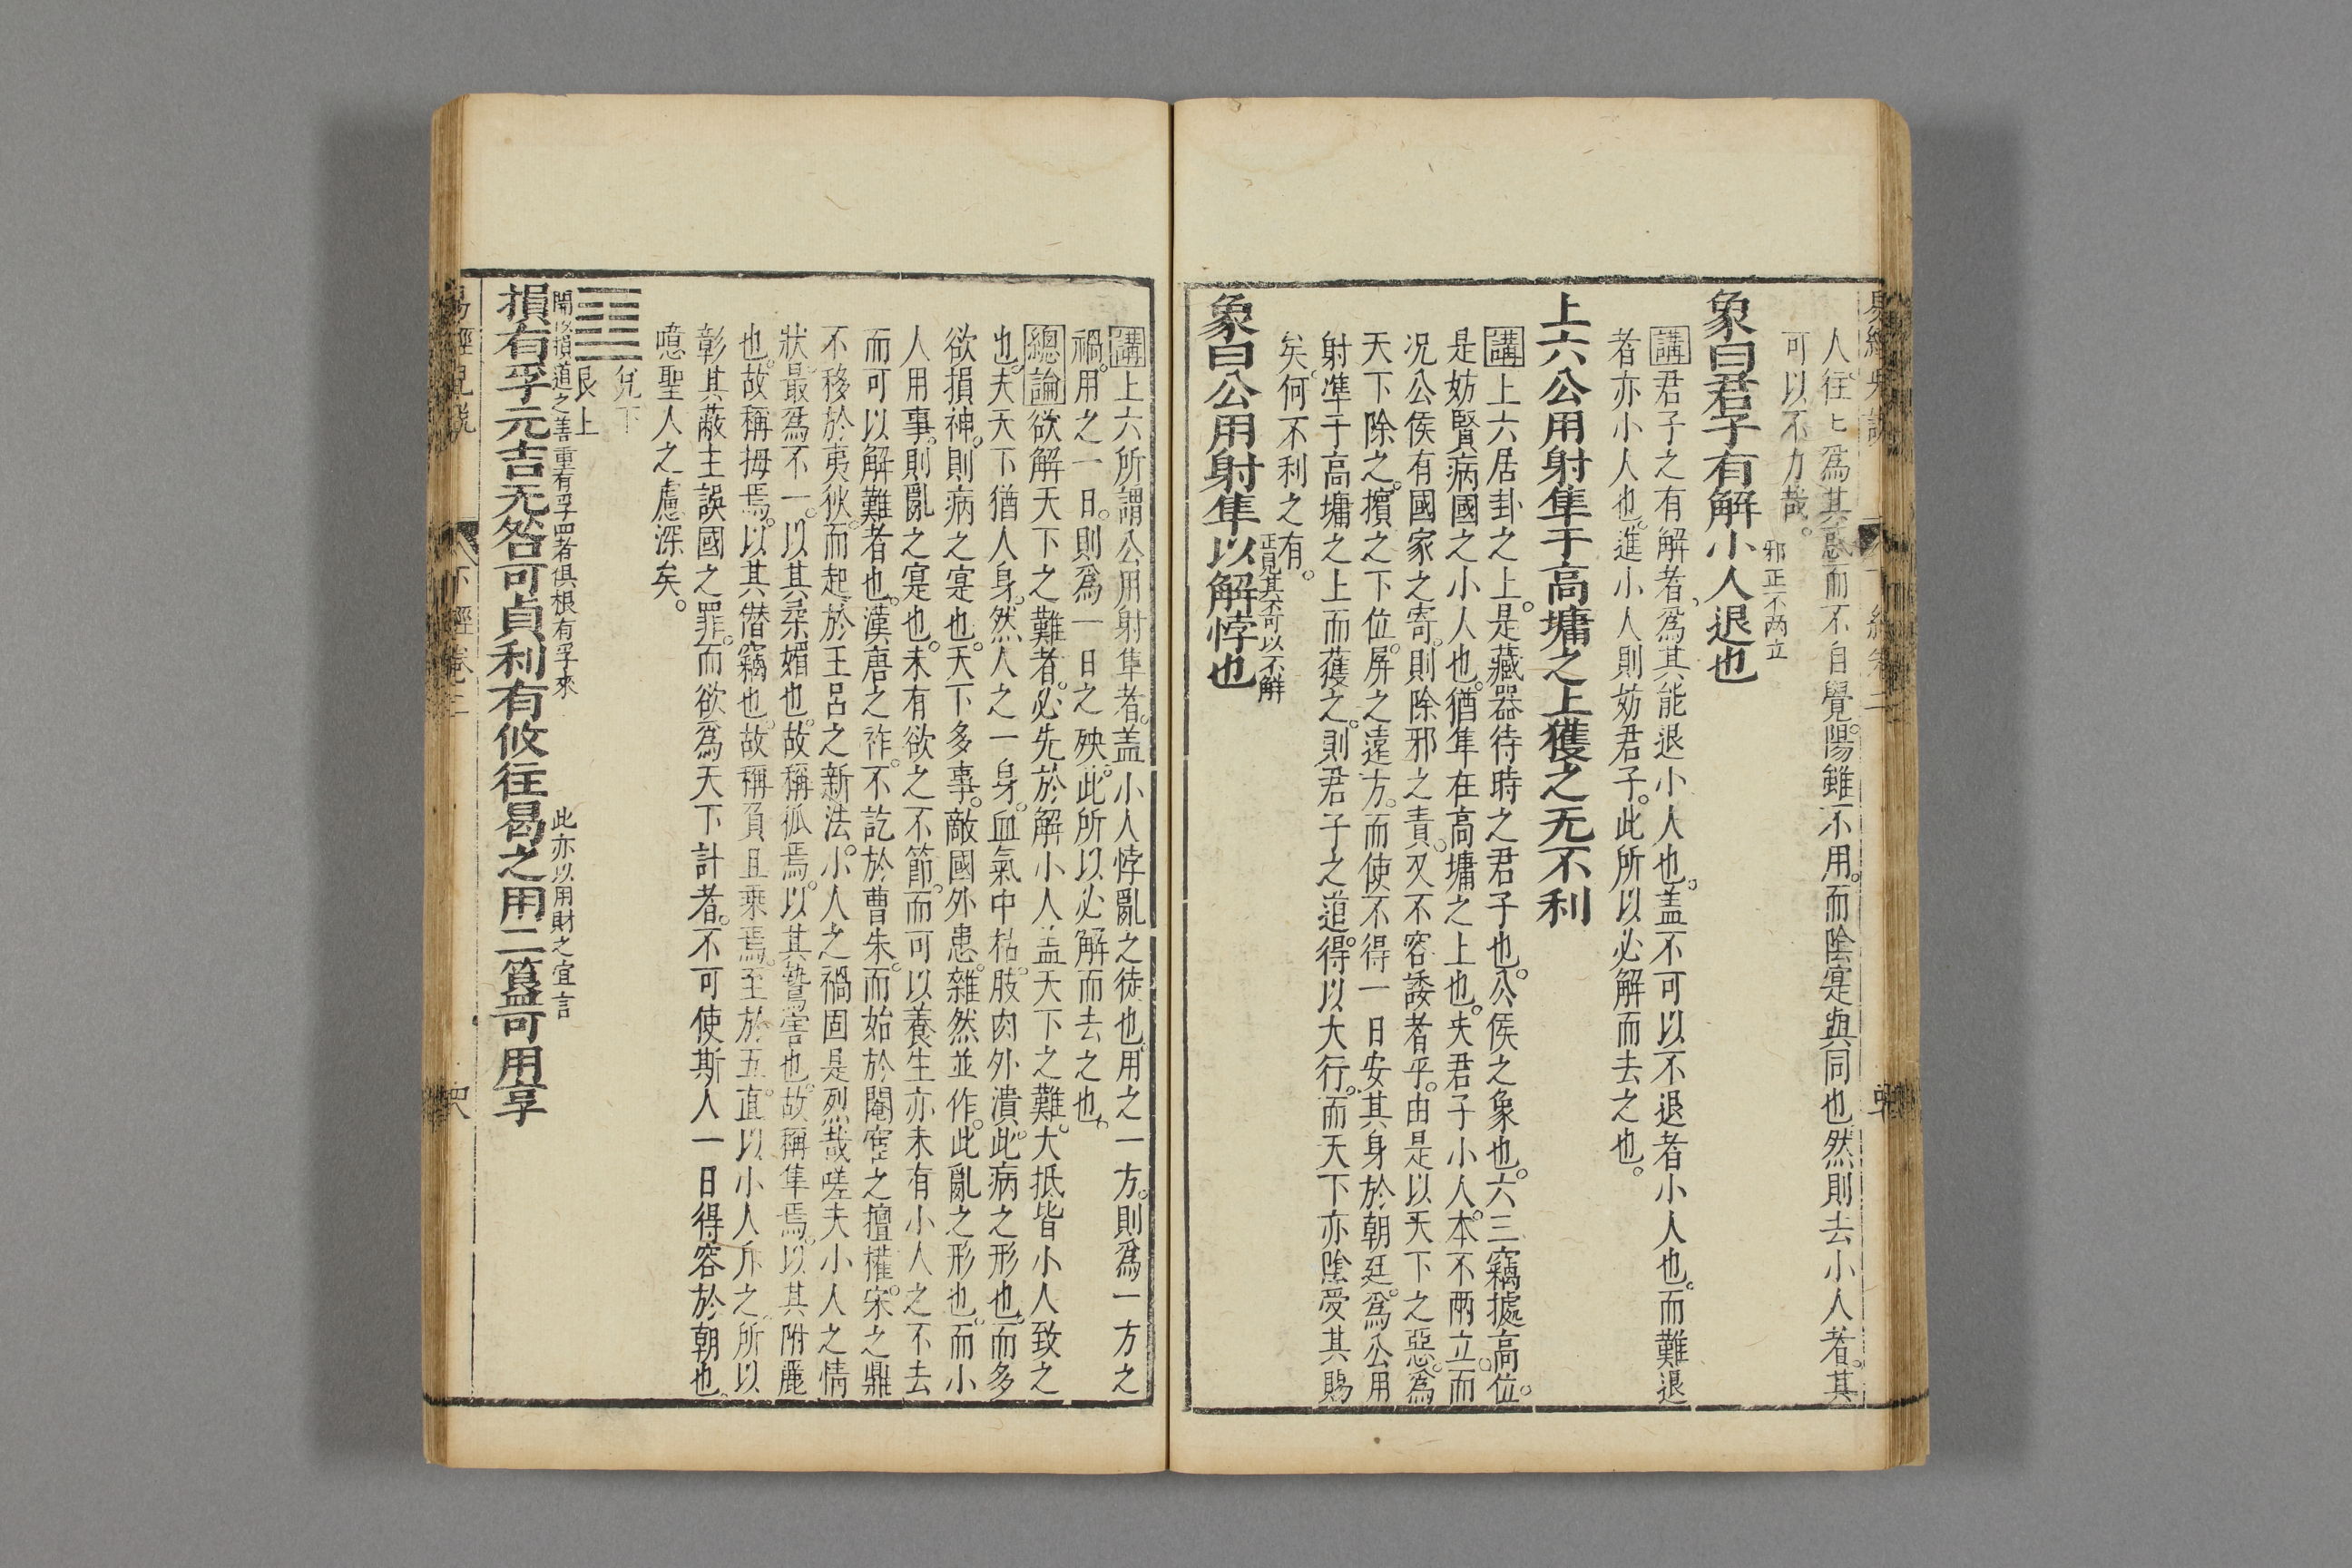 人往往爲其惑而不自覺陽雖不用而陰寔與同也然則去小人者其
可以不力哉
邪正不两立
象曰君子有解小人退也
講君子之有解者爲其能退小人也盖不可以不退者小人也而難退
者亦小人也進小人則妨君子此所以必解而去之也
上六公用射隼于高墉之上獲之无不利
講上六居卦之上是藏器待時之君子也公侯之象也六三竊據高位
是妨賢病國之小人也猶隼在高墉之上也夫君子小人本不兩立而
况公侯有國家之寄則除邪之責又不容諉者乎由是以天下之惡爲
天下除之擯之下位屏之遠方而使不得一日安其身於朝廷爲公用
射準于高墉之上而獲之則君子之道得以大行而天下亦陰受其賜
矣何不利之有
正見其不可以不解
象曰公用射隼以解悖也
講上六所謂公用射隼者盖小人悖亂之徒也用之一方則爲一方之
禍用之一日則爲一日之殃此所以必解而去之也
總論欲解天下之難者必先於解小人盖天下之難大抵皆小人致之
也夫天下猶人身然人之一身血氣中枯肢肉外潰此病之形也而多
欲損神則病之寔也天下多事敵國外患雜然並作此亂之形也而小
人用事則亂之寔也未有欲之不節而可以養生亦未有小人之不去
而可以解難者也漢唐之祚不訖於曹朱而始於閹宦之擅權宋之鼎
不移於夷狄而起於王呂之新法小人之禍固是烈哉嗟夫小人之情
狀最爲不一以其柔媚也故稱狐焉以其鷙害也故稱隼焉以其附麗
也故稱拇焉以其僭竊也故稱負且乗焉至於五直以小人斥之所以
彰其蔽主誤國之罪而欲爲天下計者不可使斯人一日得容於朝也
噫聖人之慮深矣
兌下
艮上
開以損道之善重有孚四者俱根有孚來
此亦以用財之宜言
損有孚元吉无咎可貞利有攸往曷之用二簋可用享
下經卷三